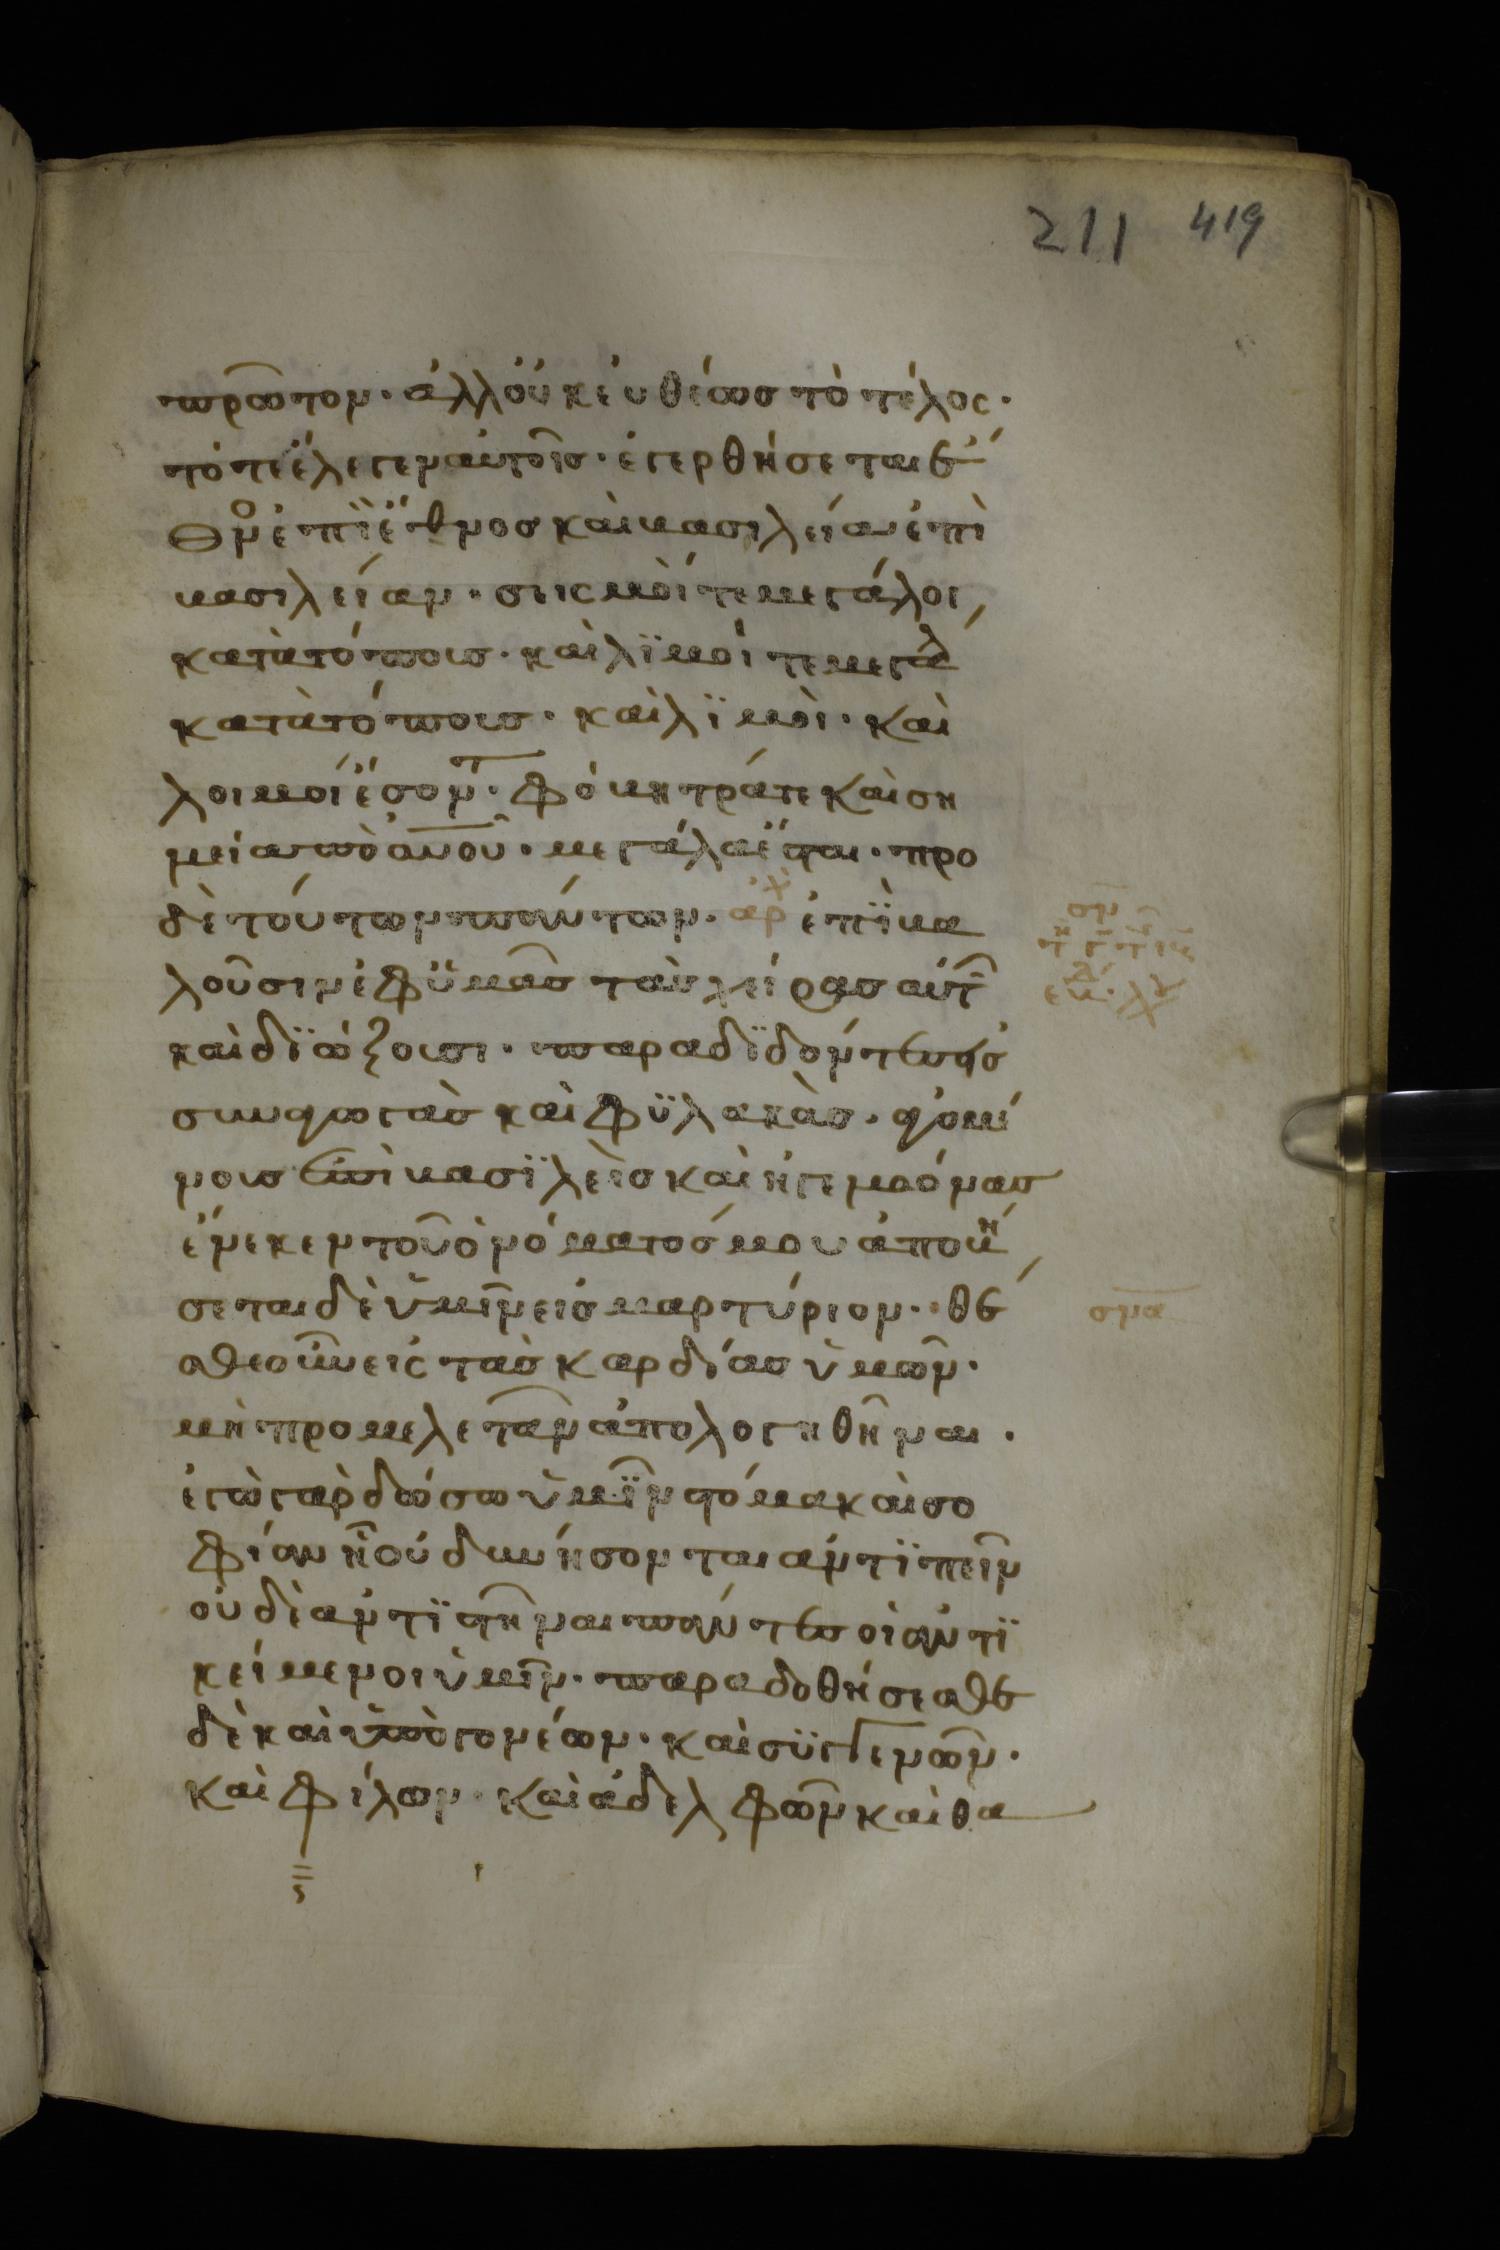 211 419
πρῶτον· ἀλλ οὐκ εὐθέως τὸ τέλος·
τότε ἔλεγεν αὐτοῖς· ἐγερθήσεται ἔ
θνο ἐπὶ ἔθνος καὶ βασιλεία ἐπὶ
βασιλείαν· σεισμοί τε μεγάλοι
κατὰ τόπους· καὶ λϊμοί τε μεγάλ
κατὰ τόπους· καὶ λϊμοὶ· καὶ
λοιμοὶ ἔσοντ· φόβητρά τε καὶ ση
μεία ἀπὸ οὐνοῦ· μεγάλα ἔσται· προ
δὲ τούτων πάντων· ἀρχ ἐπϊβα
λοῦσιν ἐφ ὑμᾶς τὰς χείρας αὐτ
καὶ δϊώξουσι· παραδϊδόντες εἰσ
συναγωγὰς καὶ φϋλακὰς· ἀγομέ
νους ἐπὶ βασϊλεὶς καὶ ἡγεμόνας
ἕνεκεν τοῦ ὀνόματός μου ἀποβή
σεται δὲ ὑμῖν εἰς μαρτύριον· θέ
σθε οὖν εἰς τὰς καρδίας ὑμῶν·
μὴ προμελετᾶν ἀπολογηθῆναι·
ἐγὼ γὰρ δώσω ὑμῖν στόμα καὶ σο
φίαν ᾗ οὐ δυνήσονται ἀντϊπεῖν
οὐδὲ ἀντϊστῆναι πάντες οἱ ἀντϊ
κείμενοι ὑμῖν· παραδοθήσεσθε
δὲ καὶ ὑπὸ γονέων· καὶ συγγενῶν·
καὶ φίλων· καὶ ἀδελφῶν καὶ θα